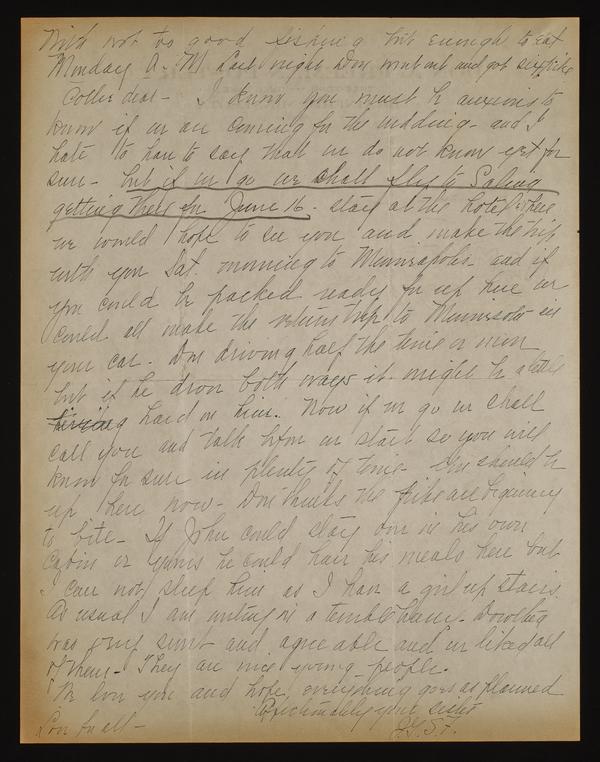 With not too good fishing but enough to eat
Monday A. M. Last night Don went out and got six pike
Collie dear - I know you must be anxious to
know if we are coming for the wedding - and I
hate to have to say that we do not know yet for
sure - but if we go we shall fly to Salina
getting there on June 16 - stay at the hotel where
we would hope to see you and make the trip
with you Sat. morning to Minneapolis and if
you could be packed ready for up here we
could all make the return trip to Minnesota in
your car. Don driving half the time or more
but if he drove both ways it might be a little
hard on him. Now if we go we shall
call you and talk before we start so you will
know for sure in plenty of time - You should be
up here now - Don thinks the pike are beginning
to bite - If John could stay over in his own
Cabin or yours he could have his meals here but
I can not sleep him as I have a girl up stairs.
As usual I am writing in a terrible hurry - Dowling
was very sweet and agreeable and we liked all
of them - They are nice young people.
We love you and hope everything goes as planned
Affectionately your sister
Love to all - J.G.S.F.